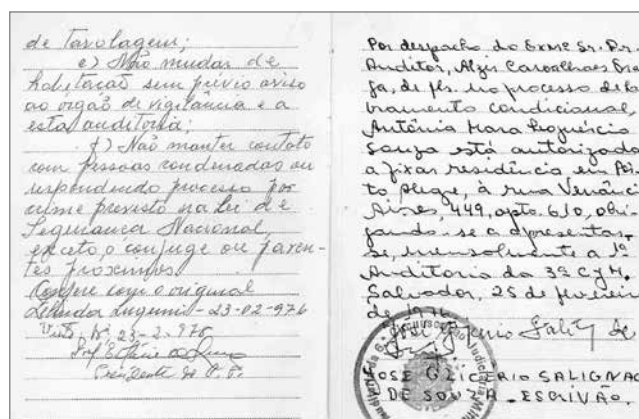 de Tavolagem;
e) Não mudar de
habitação sem prévio aviso
ao orgão de vigilancia e a
esta auditoria;
f) Não manter contato
com pessoas condenadas ou
respondendo processo por
crime previsto na Lei de
Segurança Nacional,
exceto, o conjuge ou paren-
tes proximos.
Confere com o original
23-02-976
Visto, 23-2-976
Presidente do C. P.
Por despacho do Exmº Sr. Dr.
Auditor, Alzir Carvalhaes Fra
ga, de fls. no processo de li
vramento condicional,
Antônia Mara
Souza está autorizada
a fixar residência em Pôr
to Alegre, à rua Venâncio
Aires, 449, apto. 610, obri
gando-se a apresentar-
se, mensalmente a 1ª
Auditoria da 3ª CJM.
Salvador, 25 de fevereiro
de 1976
José Glicério Salig de
JOSÉ GLICÉRIO SALIGNAC
DE SOUZA - ESCRIVÃO.